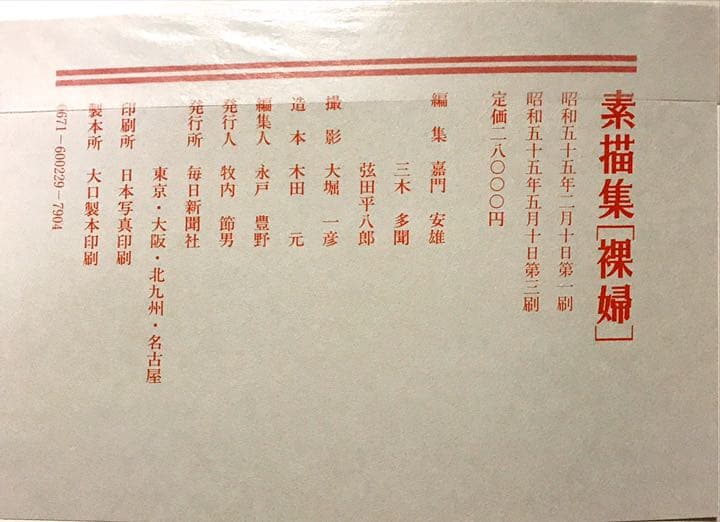 素描集［裸婦］
昭和五十五年二月十日第一刷
昭和五十五年五月十日第三刷
定価二八〇〇〇円
編集 嘉門 安雄
三木 多聞
弦田平八郎
撮影 大堀 一彦
造本 木田 元
編集人 永戸 豊野
発行人 牧内 節男
発行所 毎日新聞社
東京・大阪・北九州・名古屋
印刷所 日本写真印刷
製本所 大口製本印刷
0671－600229－7904